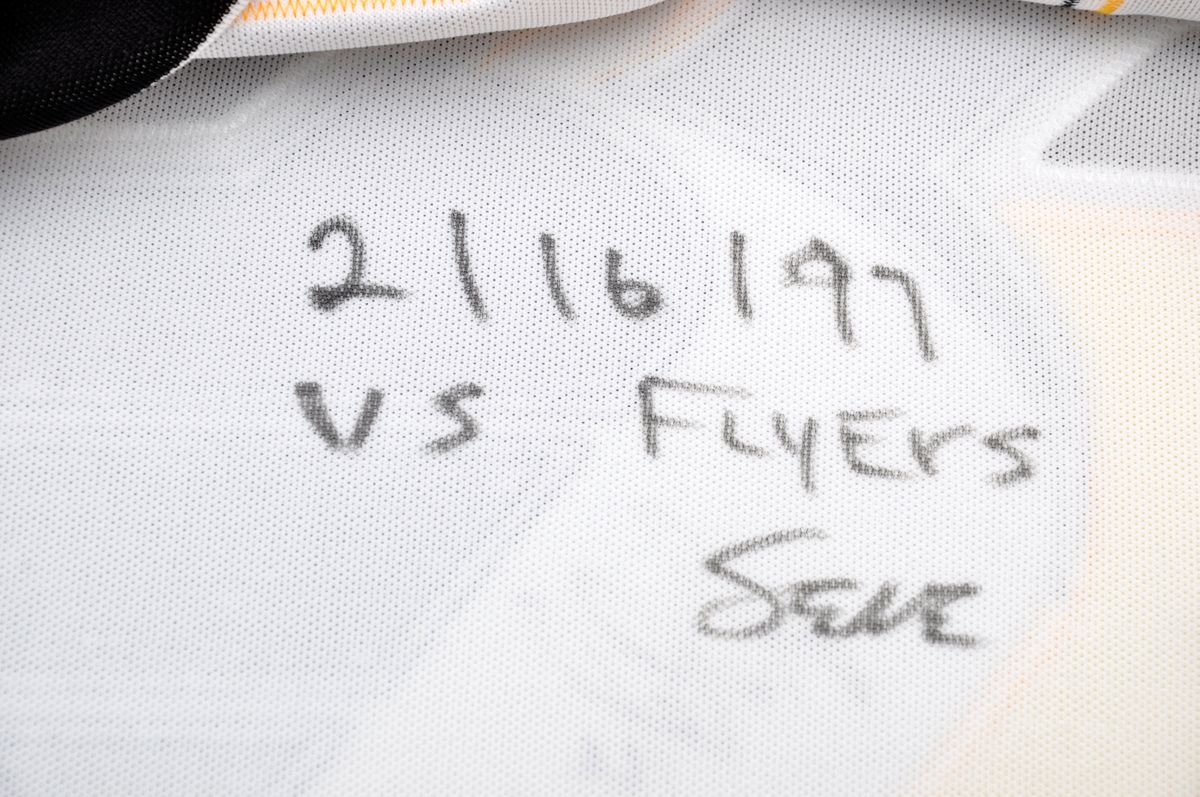 2/16/97
VS FLYErs
Seve